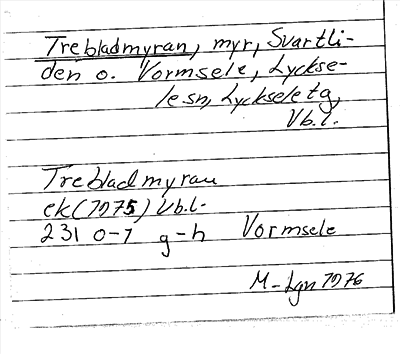 Trebladmyran, myr, Svartli-
den o. Vormsele, Lyckse-
le sn, Lycksele tg,
Vb.l.
Trebladmyran
ek (1975) Vb.l.
231 0-1 g-h Vormsele
M-Lgn 1976